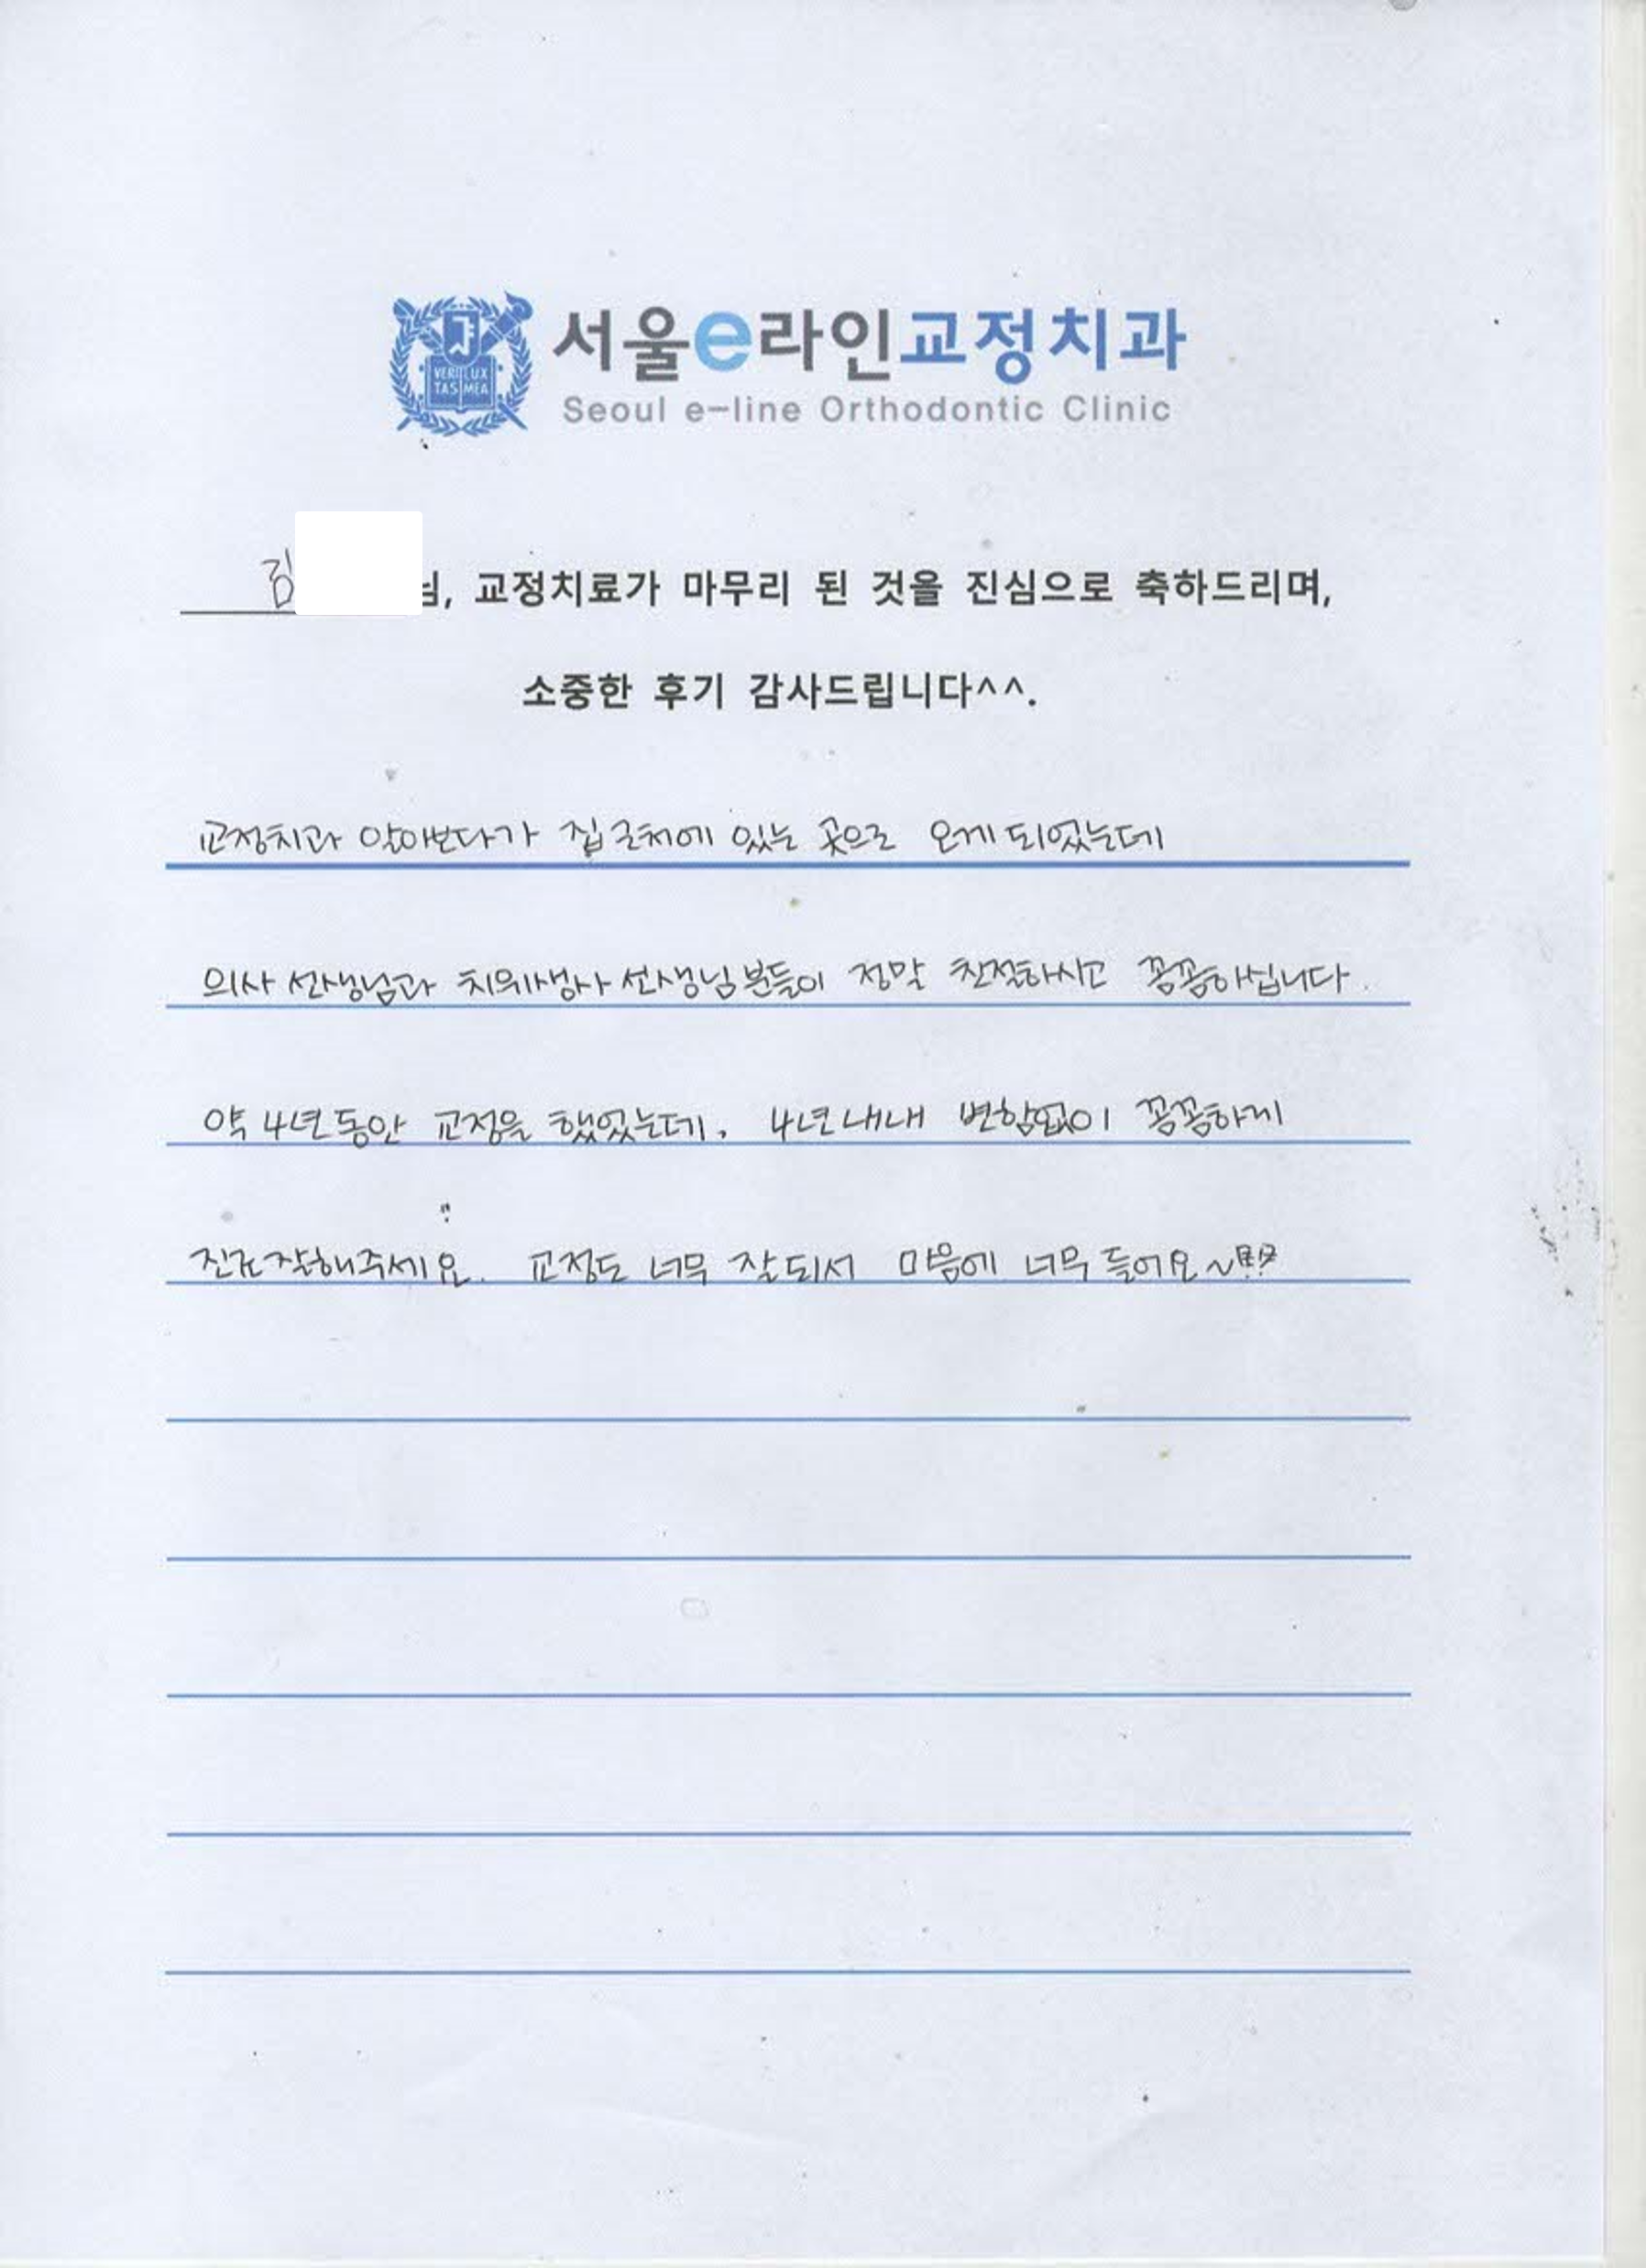 서울e라인교정치과
Seoul e-line Orthodontic Clinic
VERI LUX
TAS MEA
김 님, 교정치료가 마무리 된 것을 진심으로 축하드리며,
소중한 후기 감사드립니다^^.
교정치과 알아보다가 집 근처에 있는 곳으로 오게 되었는데
의사 선생님과 치위생사 선생님분들이 정말 친절하시고 꼼꼼하십니다.
약 4년 동안 교정을 했었는데, 4년 내내 변함없이 꼼꼼하게
진료 잘해주세요. 교정도 너무 잘 되서 마음에 너무 들어요~